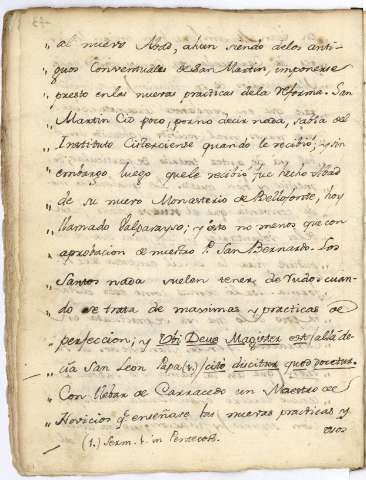 „ al nuevo Abad, ahun siendo delos anti-
„ guos Conventuales de San Martin, imponerse
„ presto en las nuevas practicas dela Reforma. San
„ Martin Cid poco, por no decir nada, sabia del
„ Instituto Cisterciense quando le recibió; y sin
„ embargo, luego quele recibió fue hecho Abad
„ de su nuevo Monasterio de Bellofonte, hoy
„ llamado Valparayso; y ésto no menos que con
„ aprobacion de nuestro P. San Bernardo. Los
„ Santos nada suelen tener de rudos cuan-
„ do se trata de maximas y practicas de
„ perfeccion; y Ubi Deus Magister est (allá de-
„ cia San Leon Papa (1.) / citò discitur quod docetur.
„ Con llebar de Carracedo un Maestro de
„ Novicios q.e enseñase las nuevas practicas y
usos
(1.) Serm. 1. in Pentecost.